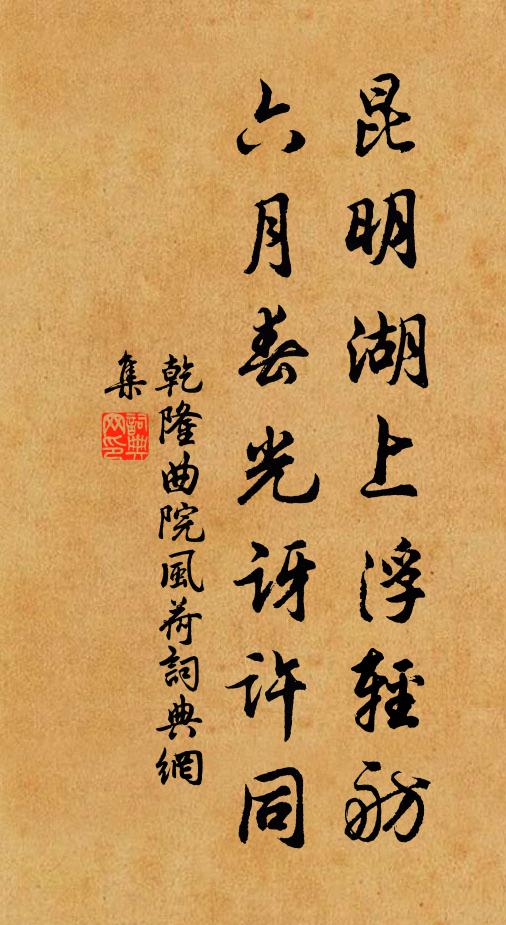 昆明湖上浮輕舫
六月春光訝許同
乾隆曲院風荷詞典網
集
詞典網印